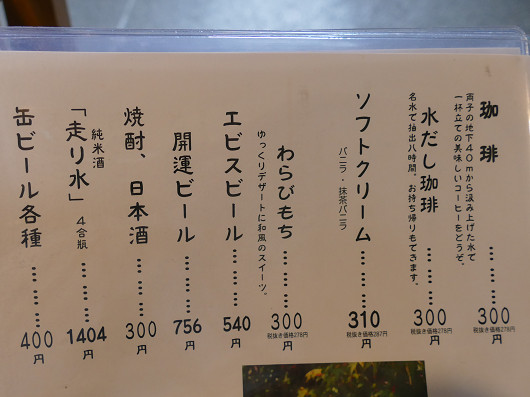 珈琲 ……… 300円
税抜き価格278円
両子の地下40mから汲み上げた水で
一杯立ての美味しいコーヒーをどうぞ。
水だし珈琲 ……… 300円
税抜き価格278円
名水で抽出八時間。お持ち帰りもできます。
ソフトクリーム ……… 310円
税抜き価格287円
バニラ・抹茶バニラ
わらびもち ……… 300円
税抜き価格278円
ゆっくりデザートに和風のスイーツ。
エビスビール ……… 540円
開運ビール ……… 756円
焼酎、日本酒 ……… 300円
純米酒
「走り水」 4合瓶 ……… 1404円
缶ビール各種 ……… 400円